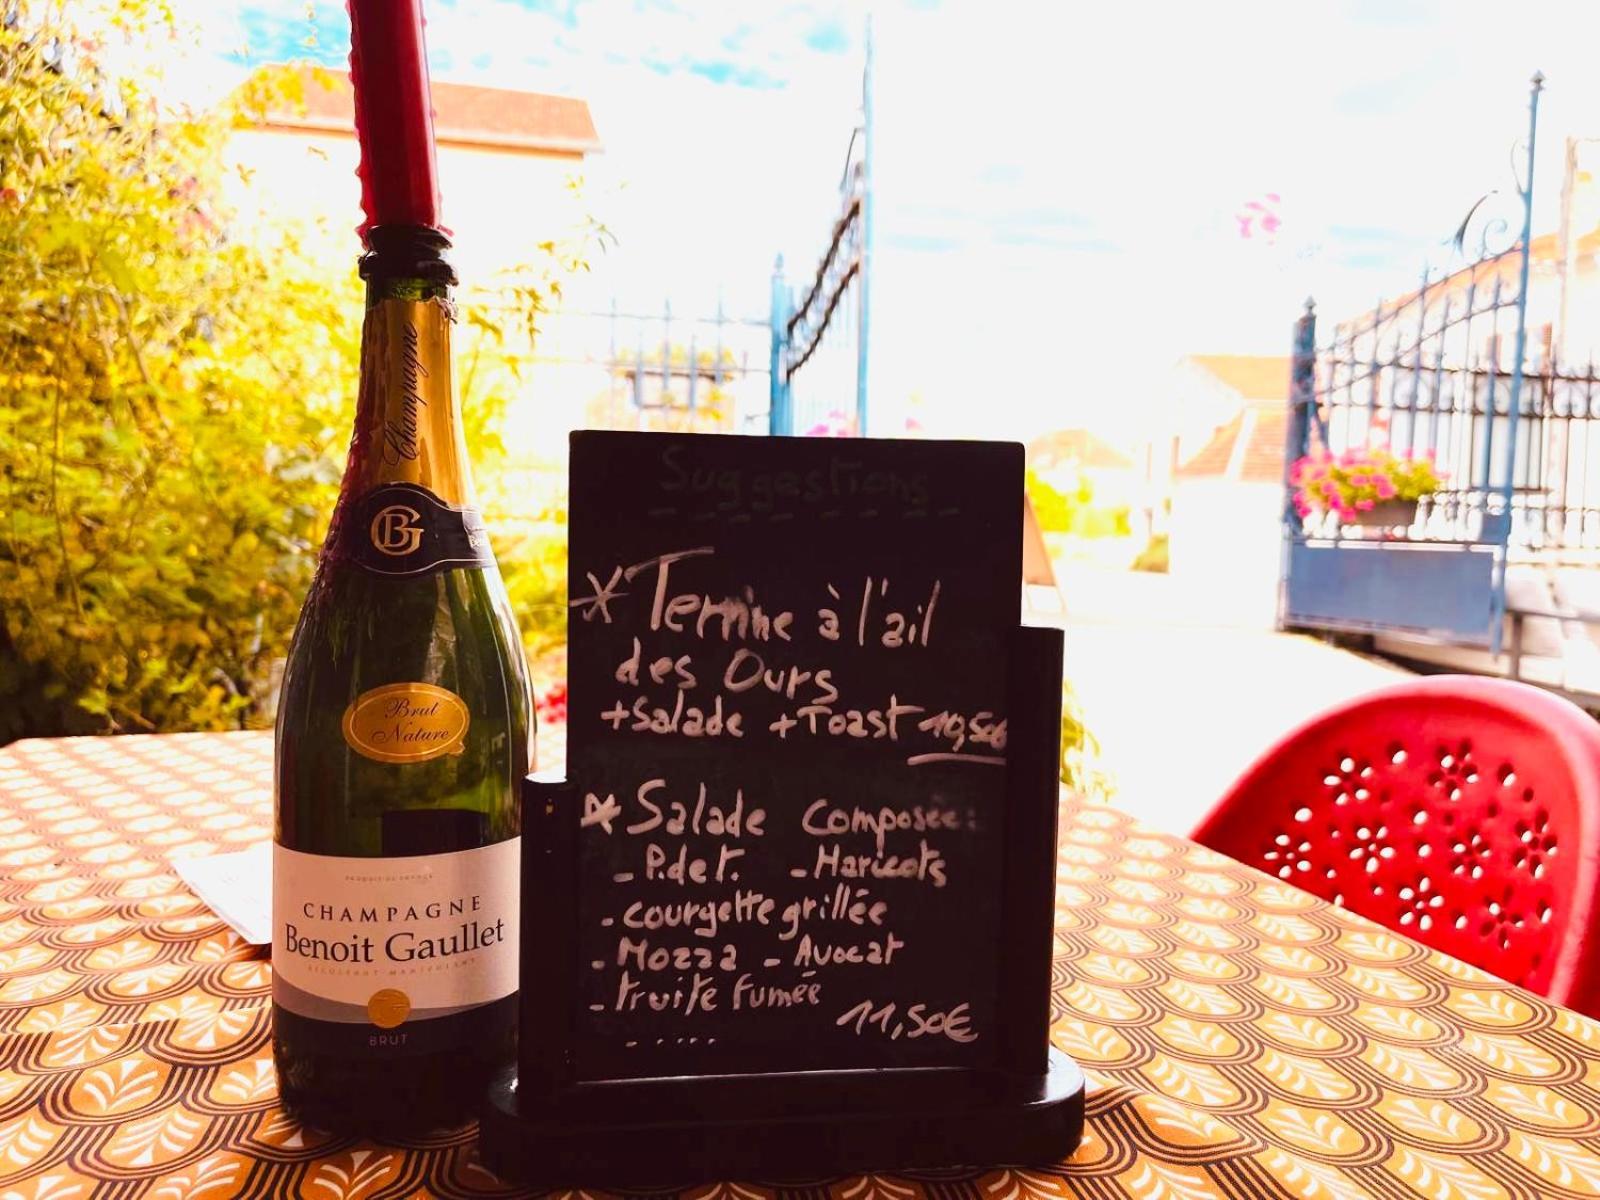 Champagne
BG
Brut
Nature
PRODUIT DE FRANCE
CHAMPAGNE
Benoit Gaullet
RÉCOLTANT MANIPULANT
BRUT
Suggestions
* Terrine à l'ail
des Ours
+Salade +Toast 10,50€
* Salade Composée:
- P.deT. - Haricots
- courgette grillée
- Mozza - Avocat
- truite fumée
11,50€
- ....